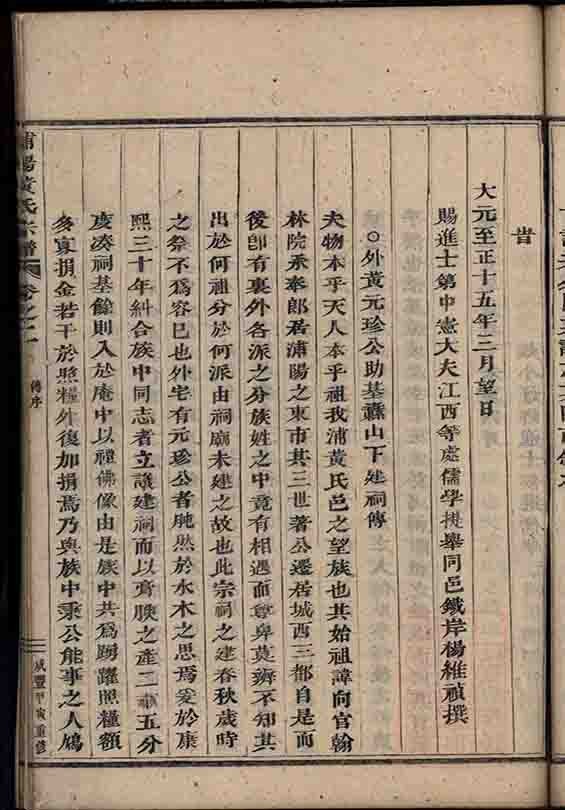 旹
大元至正十五年三月望日
賜進士第中憲大夫江西等處儒學提舉同邑鐵岸楊維禎撰
○外黃元珍公助基蠶山下建祠傳
夫物本乎天人本乎祖我浦黃氏邑之望族也其始祖諱向官翰
林院承奉郎居浦陽之東市其三世著公遷居城西三都自是而
後卽有裏外各派之分族姓之中竟有相遇而尊卑莫辨不知其
出於何祖分於何派由祠廟未建之故也此宗祠之建春秋歲時
之祭不爲容已也外宅有元珍公者肫然於水木之思焉爰於康
熙三十年糾合族中同志者立議建祠而以膏腴之產二畝五分
虔湊祠基餘則入於庵中以禮佛像由是族中共爲踴躍照糧額
多寡捐金若干於照糧外復加捐焉乃與族中秉公能事之人鳩
浦陽黃氏宗譜
卷之一
傳序
咸豐甲寅重修